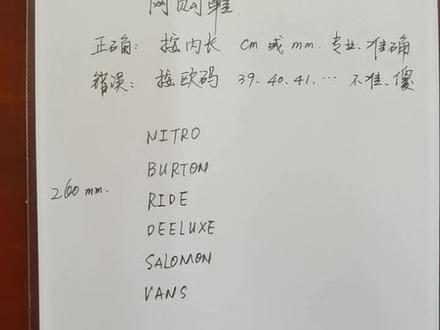 网购鞋
正确: 按内长 cm 或 mm. 专业.准确
错误: 按欧码 39. 40. 41. … 不准、傻
NITRO
BURTON
260 mm. RIDE
DEELUXE
SALOMON
VANS